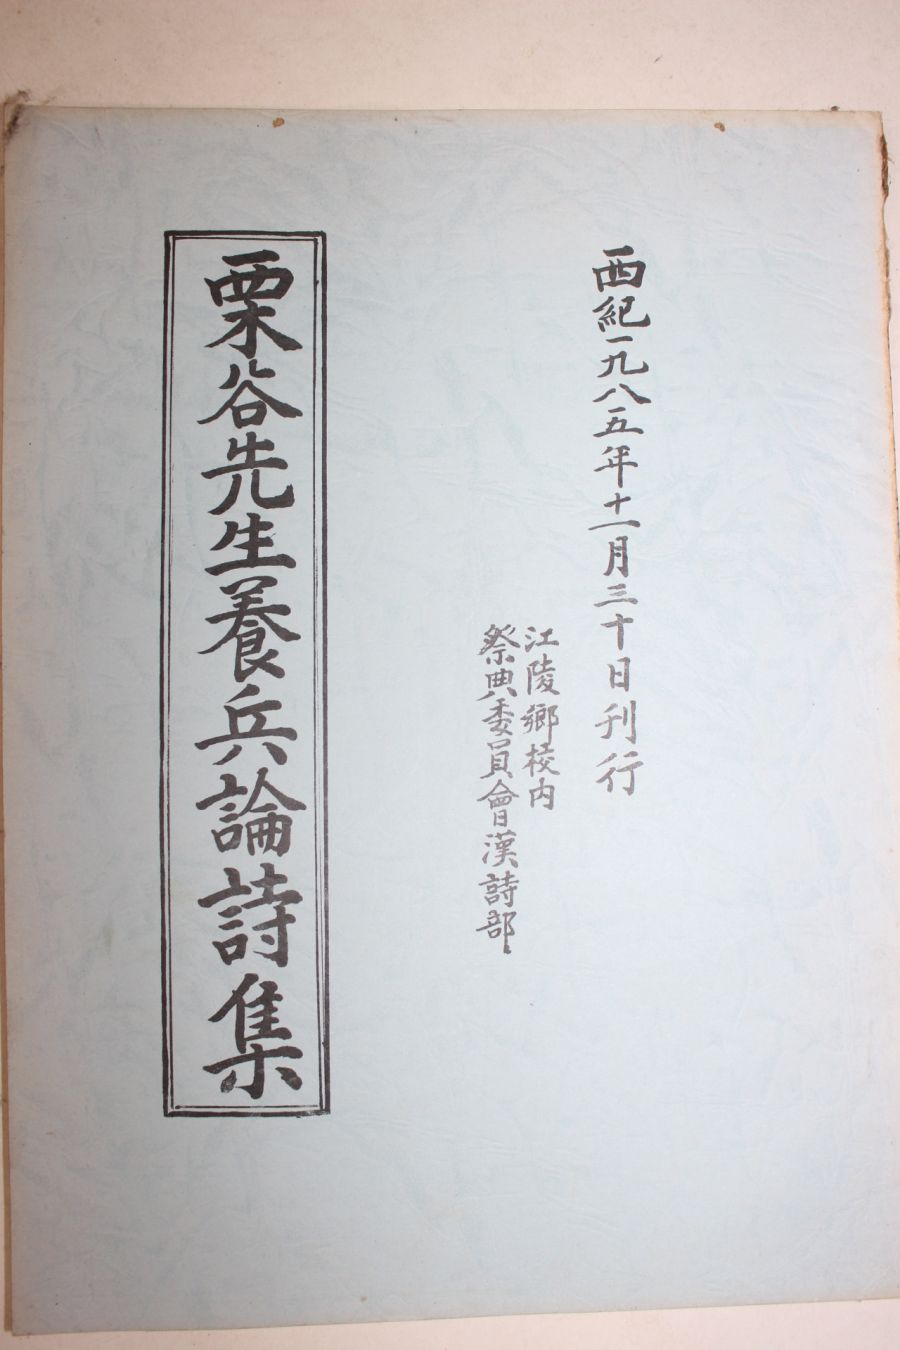 西紀一九八五年十一月三十日刊行
江陵鄉校內
祭典委員會漢詩部
栗谷先生養兵論詩集